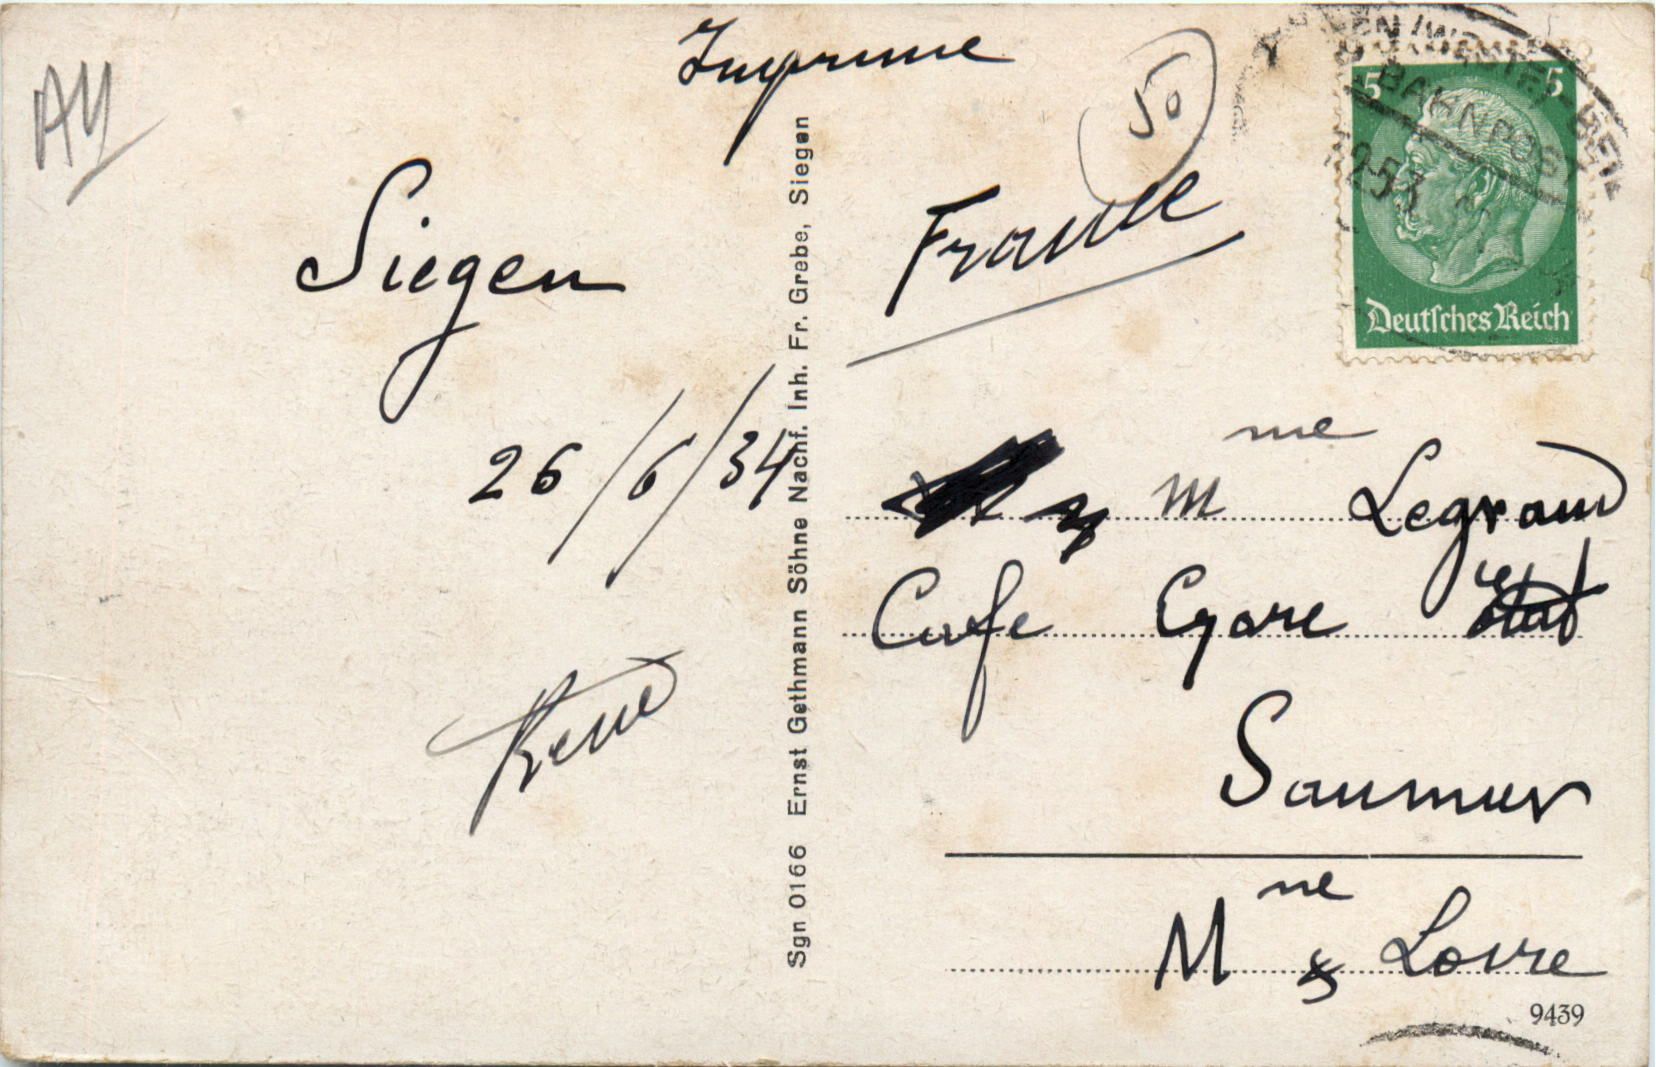 Imprime
AY
50
France
Siegen
26/6/34
René
Mme Legrand
Cafe Gare Etat
Saumur
Mne & Loire
5 5
Deutsches Reich
BAHNPOST
Sgn 0166 Ernst Gethmann Söhne Nachf. Inh. Fr. Grebe, Siegen
9439